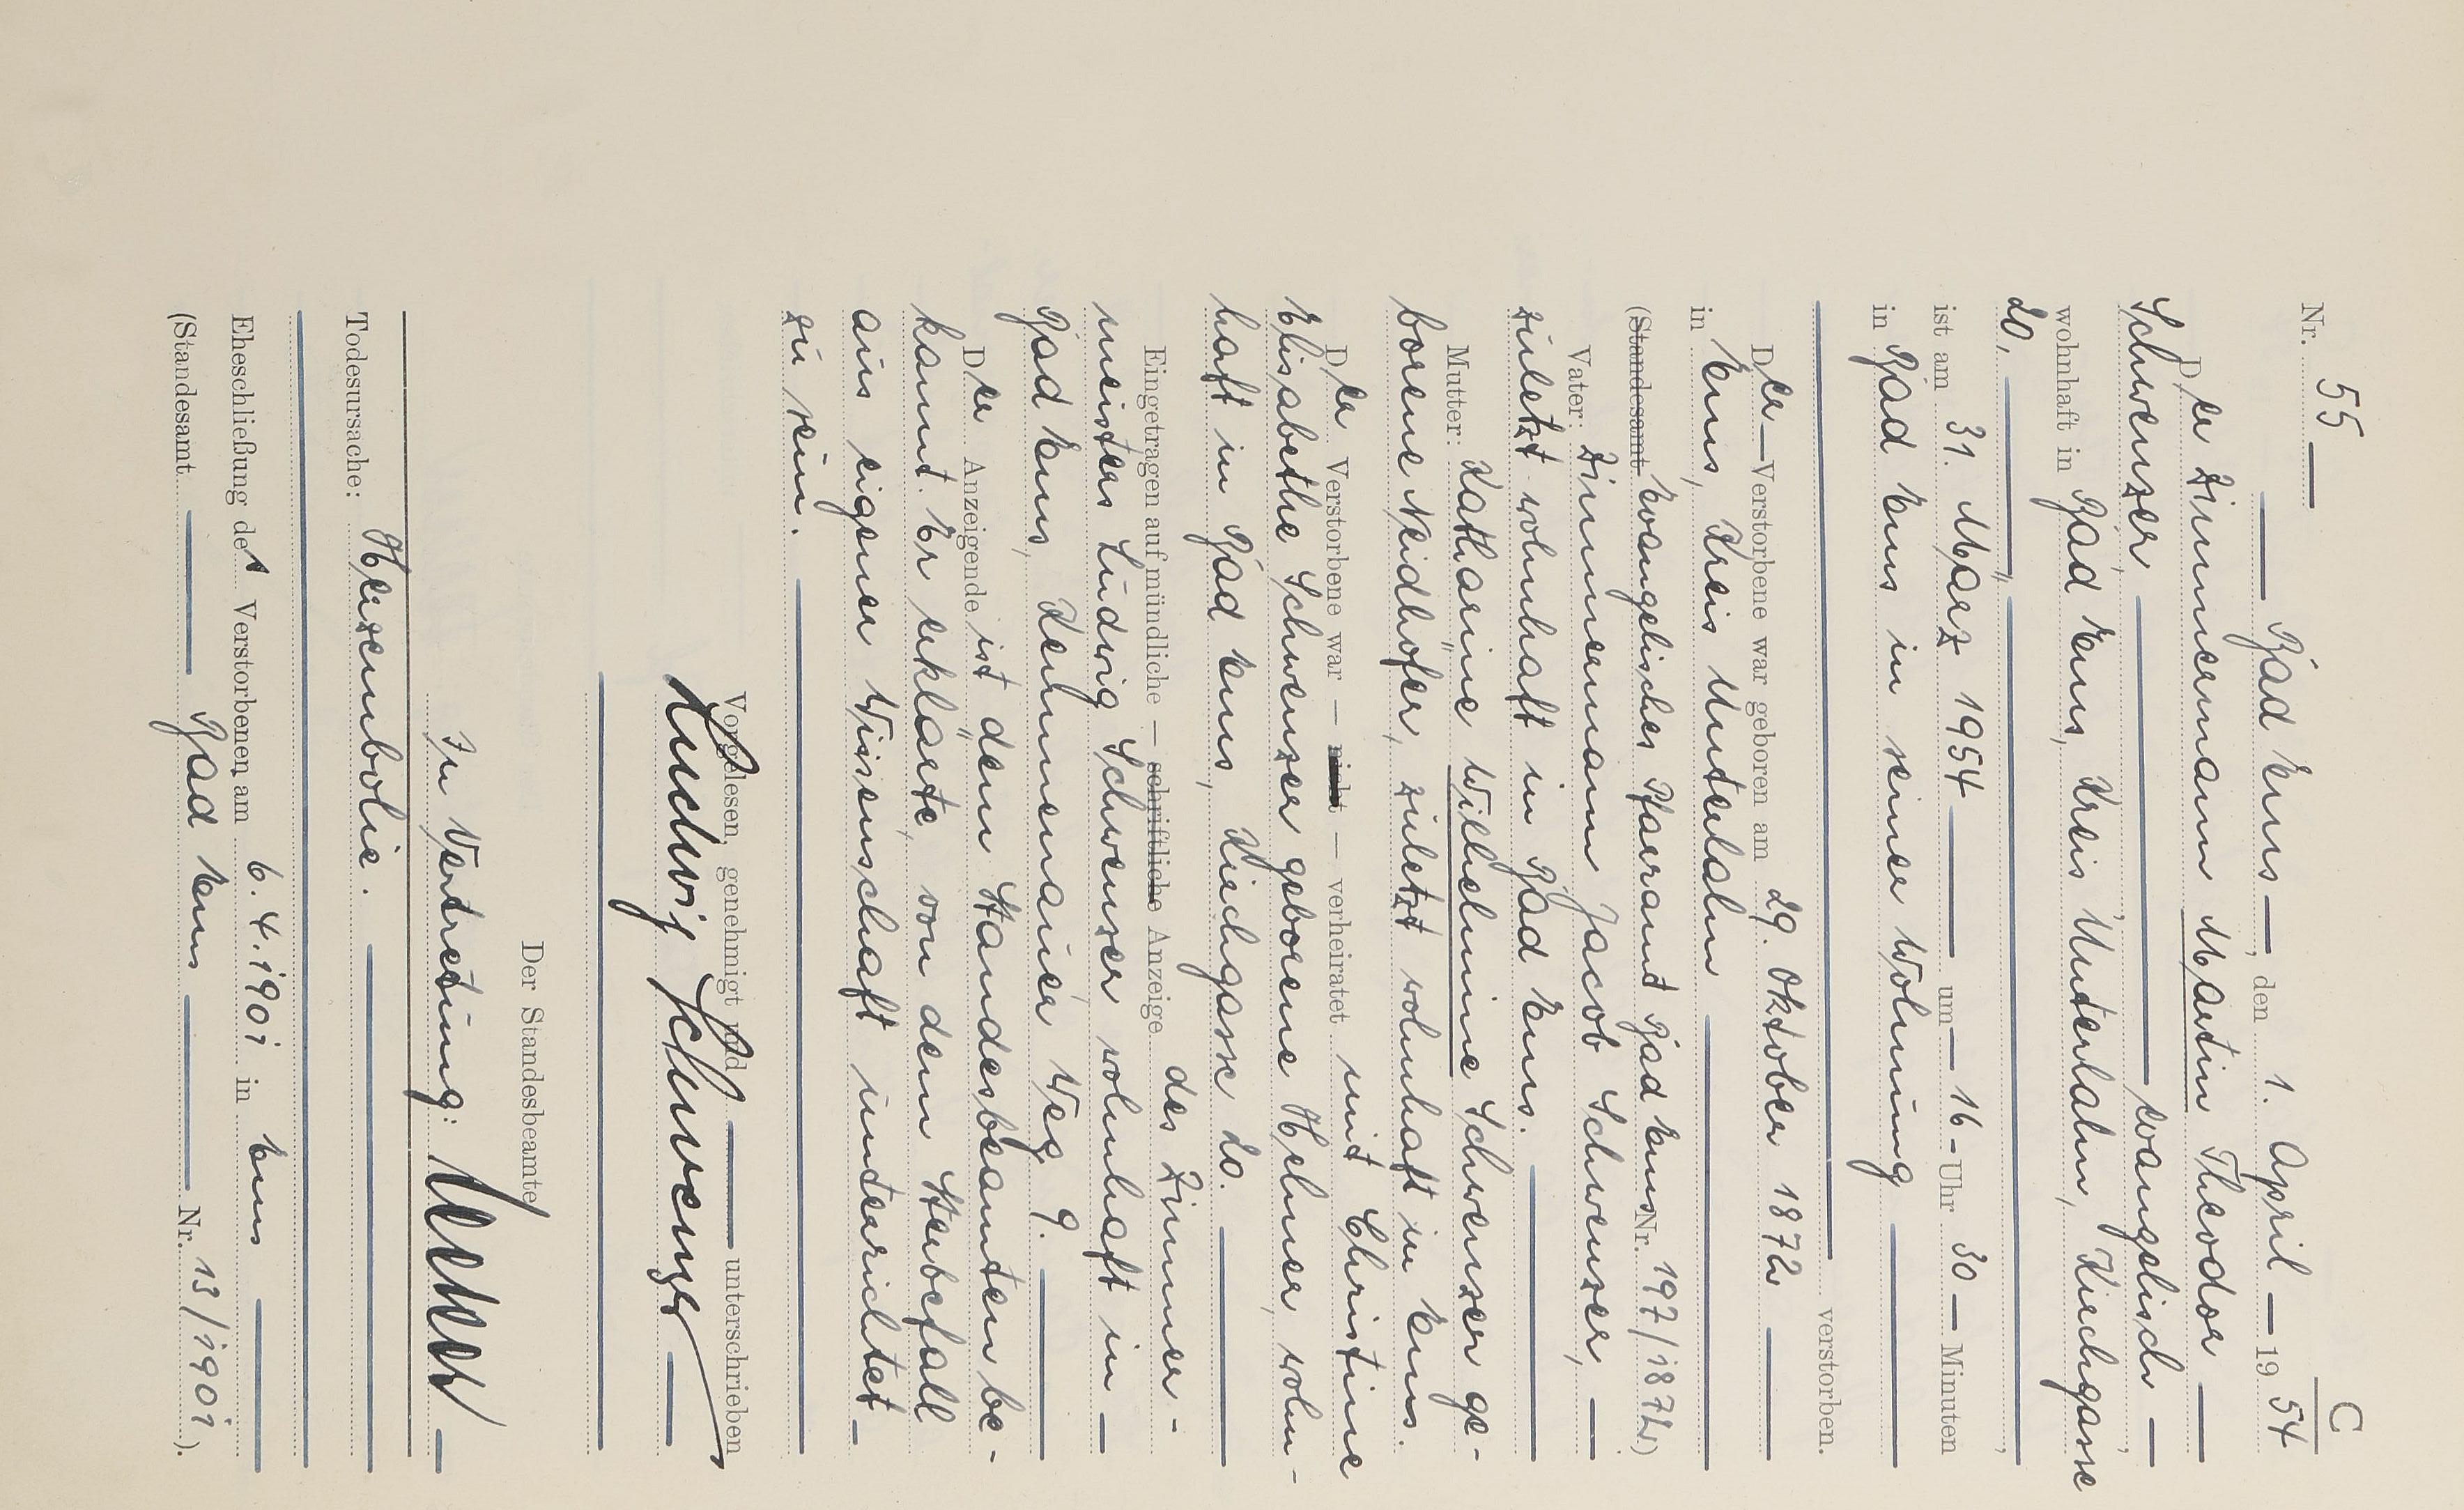 C
Nr. 55
Bad Ems, den 1. April 1954
Der Zimmermann Martin Theodor
Schwenzer, evangelisch,
wohnhaft in Bad Ems, Kreis Unterlahn, Kirchgasse
20,
ist am 31. März 1954 um 16 Uhr 30 Minuten
in Bad Ems in seiner Wohnung
verstorben.
Der Verstorbene war geboren am 29. Oktober 1872
in Ems, Kreis Unterlahn
(Standesamt Evangelisches Pfarramt Bad Ems Nr. 197/1872)
Vater: Zimmermann Jacob Schwenzer,
zuletzt wohnhaft in Bad Ems.
Mutter: Katharine Wilhelmine Schwenzer ge-
borene Neidhöfer, zuletzt wohnhaft in Ems.
Der Verstorbene war — nicht — verheiratet mit Christine
Elisabethe Schwenzer geborene Hehner, wohn-
haft in Bad Ems, Kirchgasse 20.
Eingetragen auf mündliche — schriftliche Anzeige des Zimmer-
meisters Ludwig Schwenzer wohnhaft in
Bad Ems, Kemmenauer Weg 9.
Der Anzeigende ist dem Standesbeamten be-
kannt. Er erklärte, von dem Sterbefall
aus eigener Wissenschaft unterrichtet
zu sein.
Vorgelesen, genehmigt und unterschrieben
Ludwig Schwenzer
Der Standesbeamte
In Vertretung:
Todesursache: Herzembolie.
Eheschließung des Verstorbenen am 6.4.1901 in Ems
(Standesamt Bad Ems Nr. 13/1901).